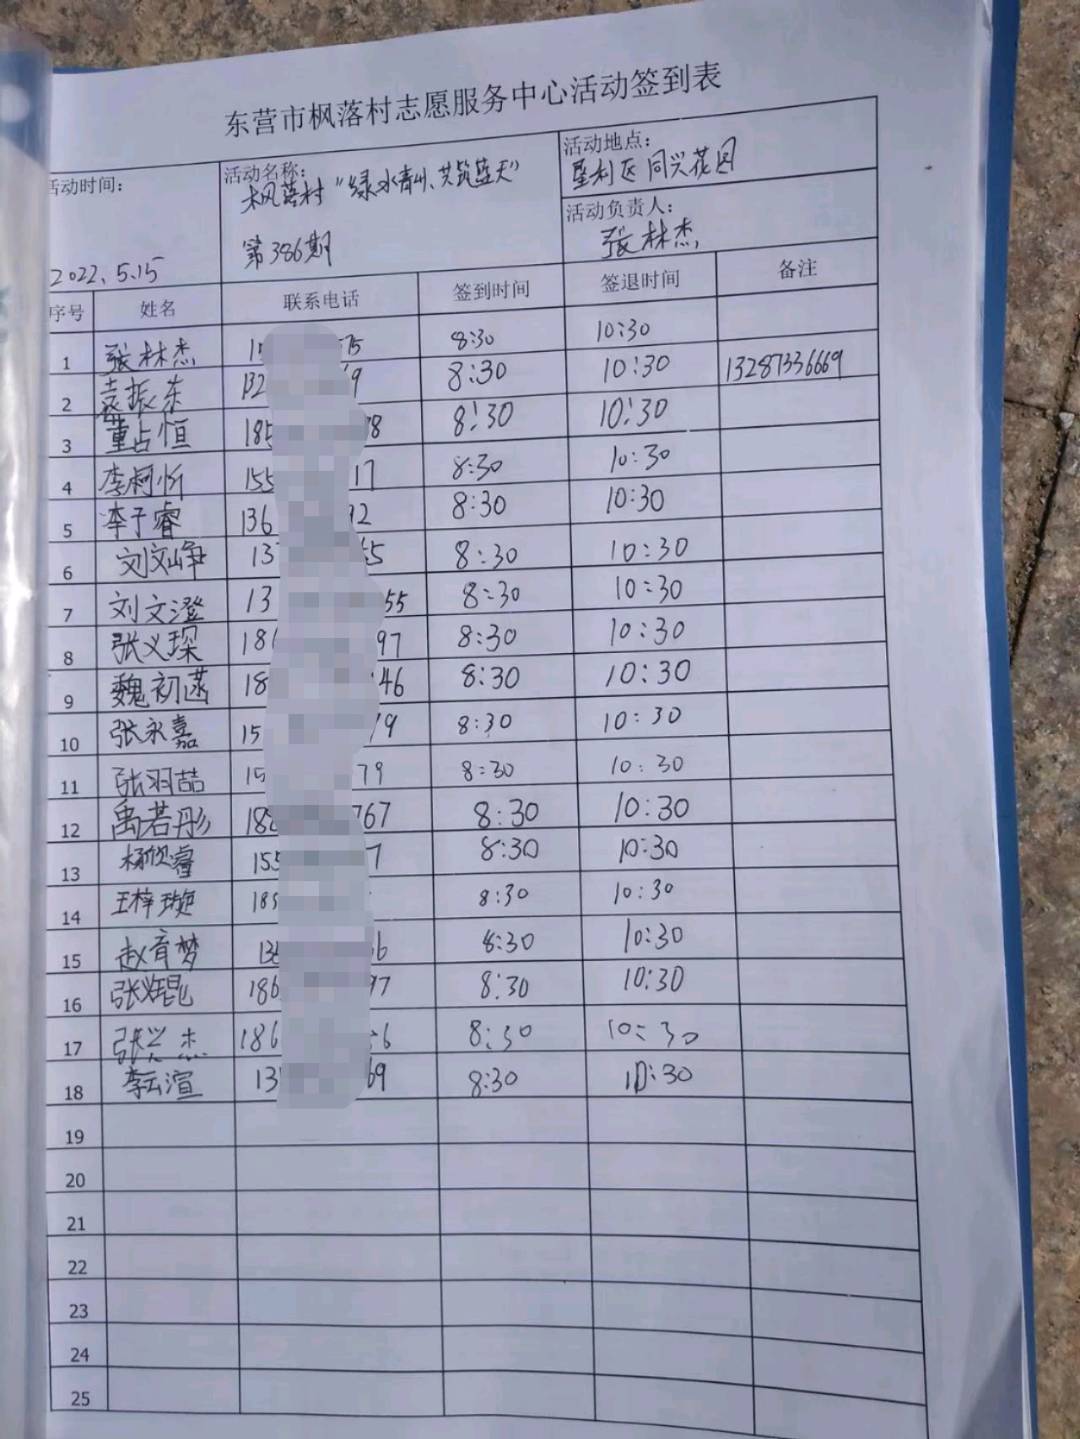 东营市枫落村志愿服务中心活动签到表
活动时间：
2022.5.15
活动名称：
枫落村“绿水青山、共筑蓝天”
第386期
活动地点：
垦利区同兴花园
活动负责人：
张林杰
序号 姓名 联系电话 签到时间 签退时间 备注
1 张林杰 15 75 8:30 10:30
2 袁振东 132 9 8:30 10:30 13287336669
3 董占恒 185 8 8:30 10:30
4 李柯忻 155 17 8:30 10:30
5 李子睿 136 92 8:30 10:30
6 刘文峥 13 5 8:30 10:30
7 刘文澄 13 55 8:30 10:30
8 张义琛 186 97 8:30 10:30
9 魏初菡 18 46 8:30 10:30
10 张永嘉 15 79 8:30 10:30
11 张羽喆 15 79 8:30 10:30
12 禹若彤 188 767 8:30 10:30
13 杨欣睿 155 7 8:30 10:30
14 王梓璇 189 8:30 10:30
15 赵育梦 13 6 8:30 10:30
16 张焜 186 97 8:30 10:30
17 张兴杰 186 6 8:30 10:30
18 李云渲 13 69 8:30 10:30
19
20
21
22
23
24
25